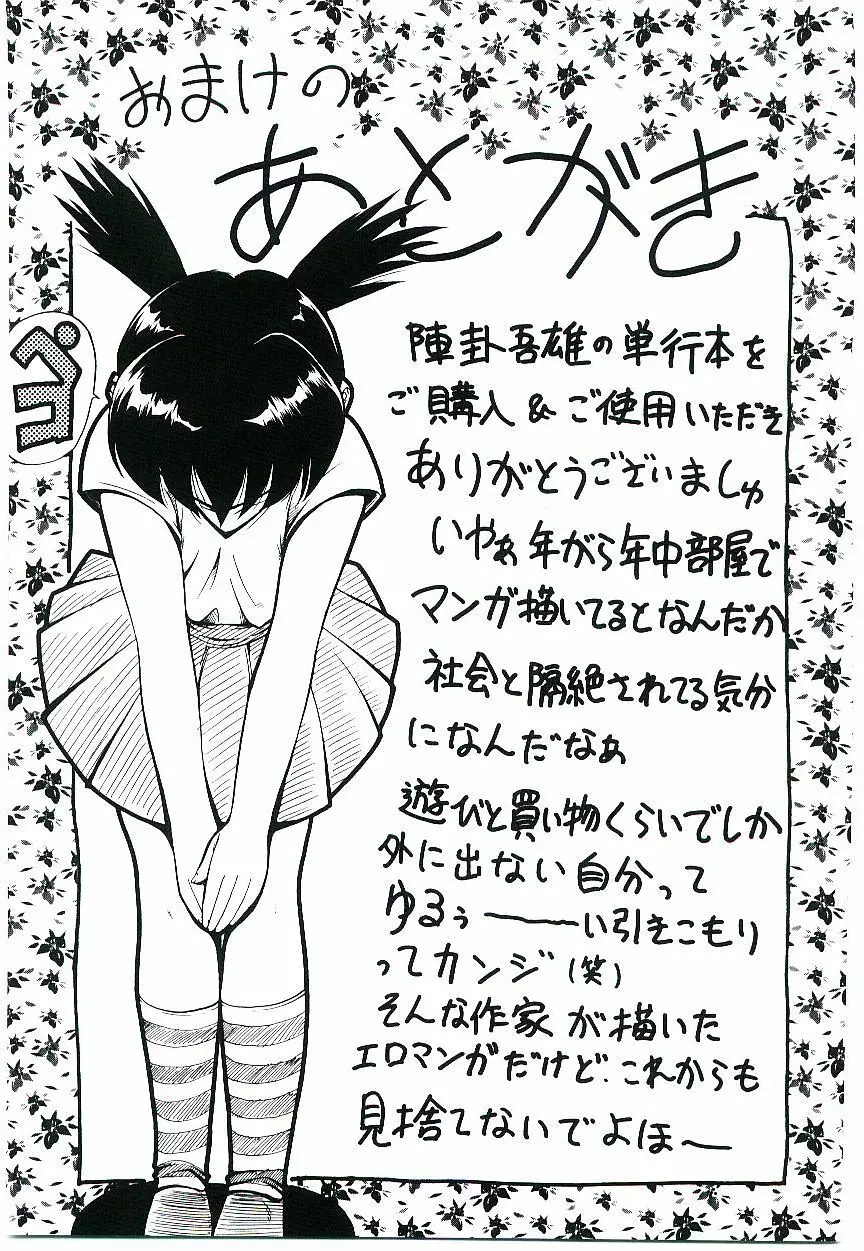 おまけの
あとがき
ペコ
陣卦吾雄の単行本を
ご購入&ご使用いただき
ありがとうございましゅ
いやぁ年がら年中部屋で
マンガ描いてるとなんだか
社会と隔絶されてる気分
になんだなぁ
遊びと買い物くらいでしか
外に出ない自分って
ゆるぅ───い引きこもり
ってカンジ(笑)
そんな作家が描いた
エロマンガだけど、これからも
見捨てないでよほ〜